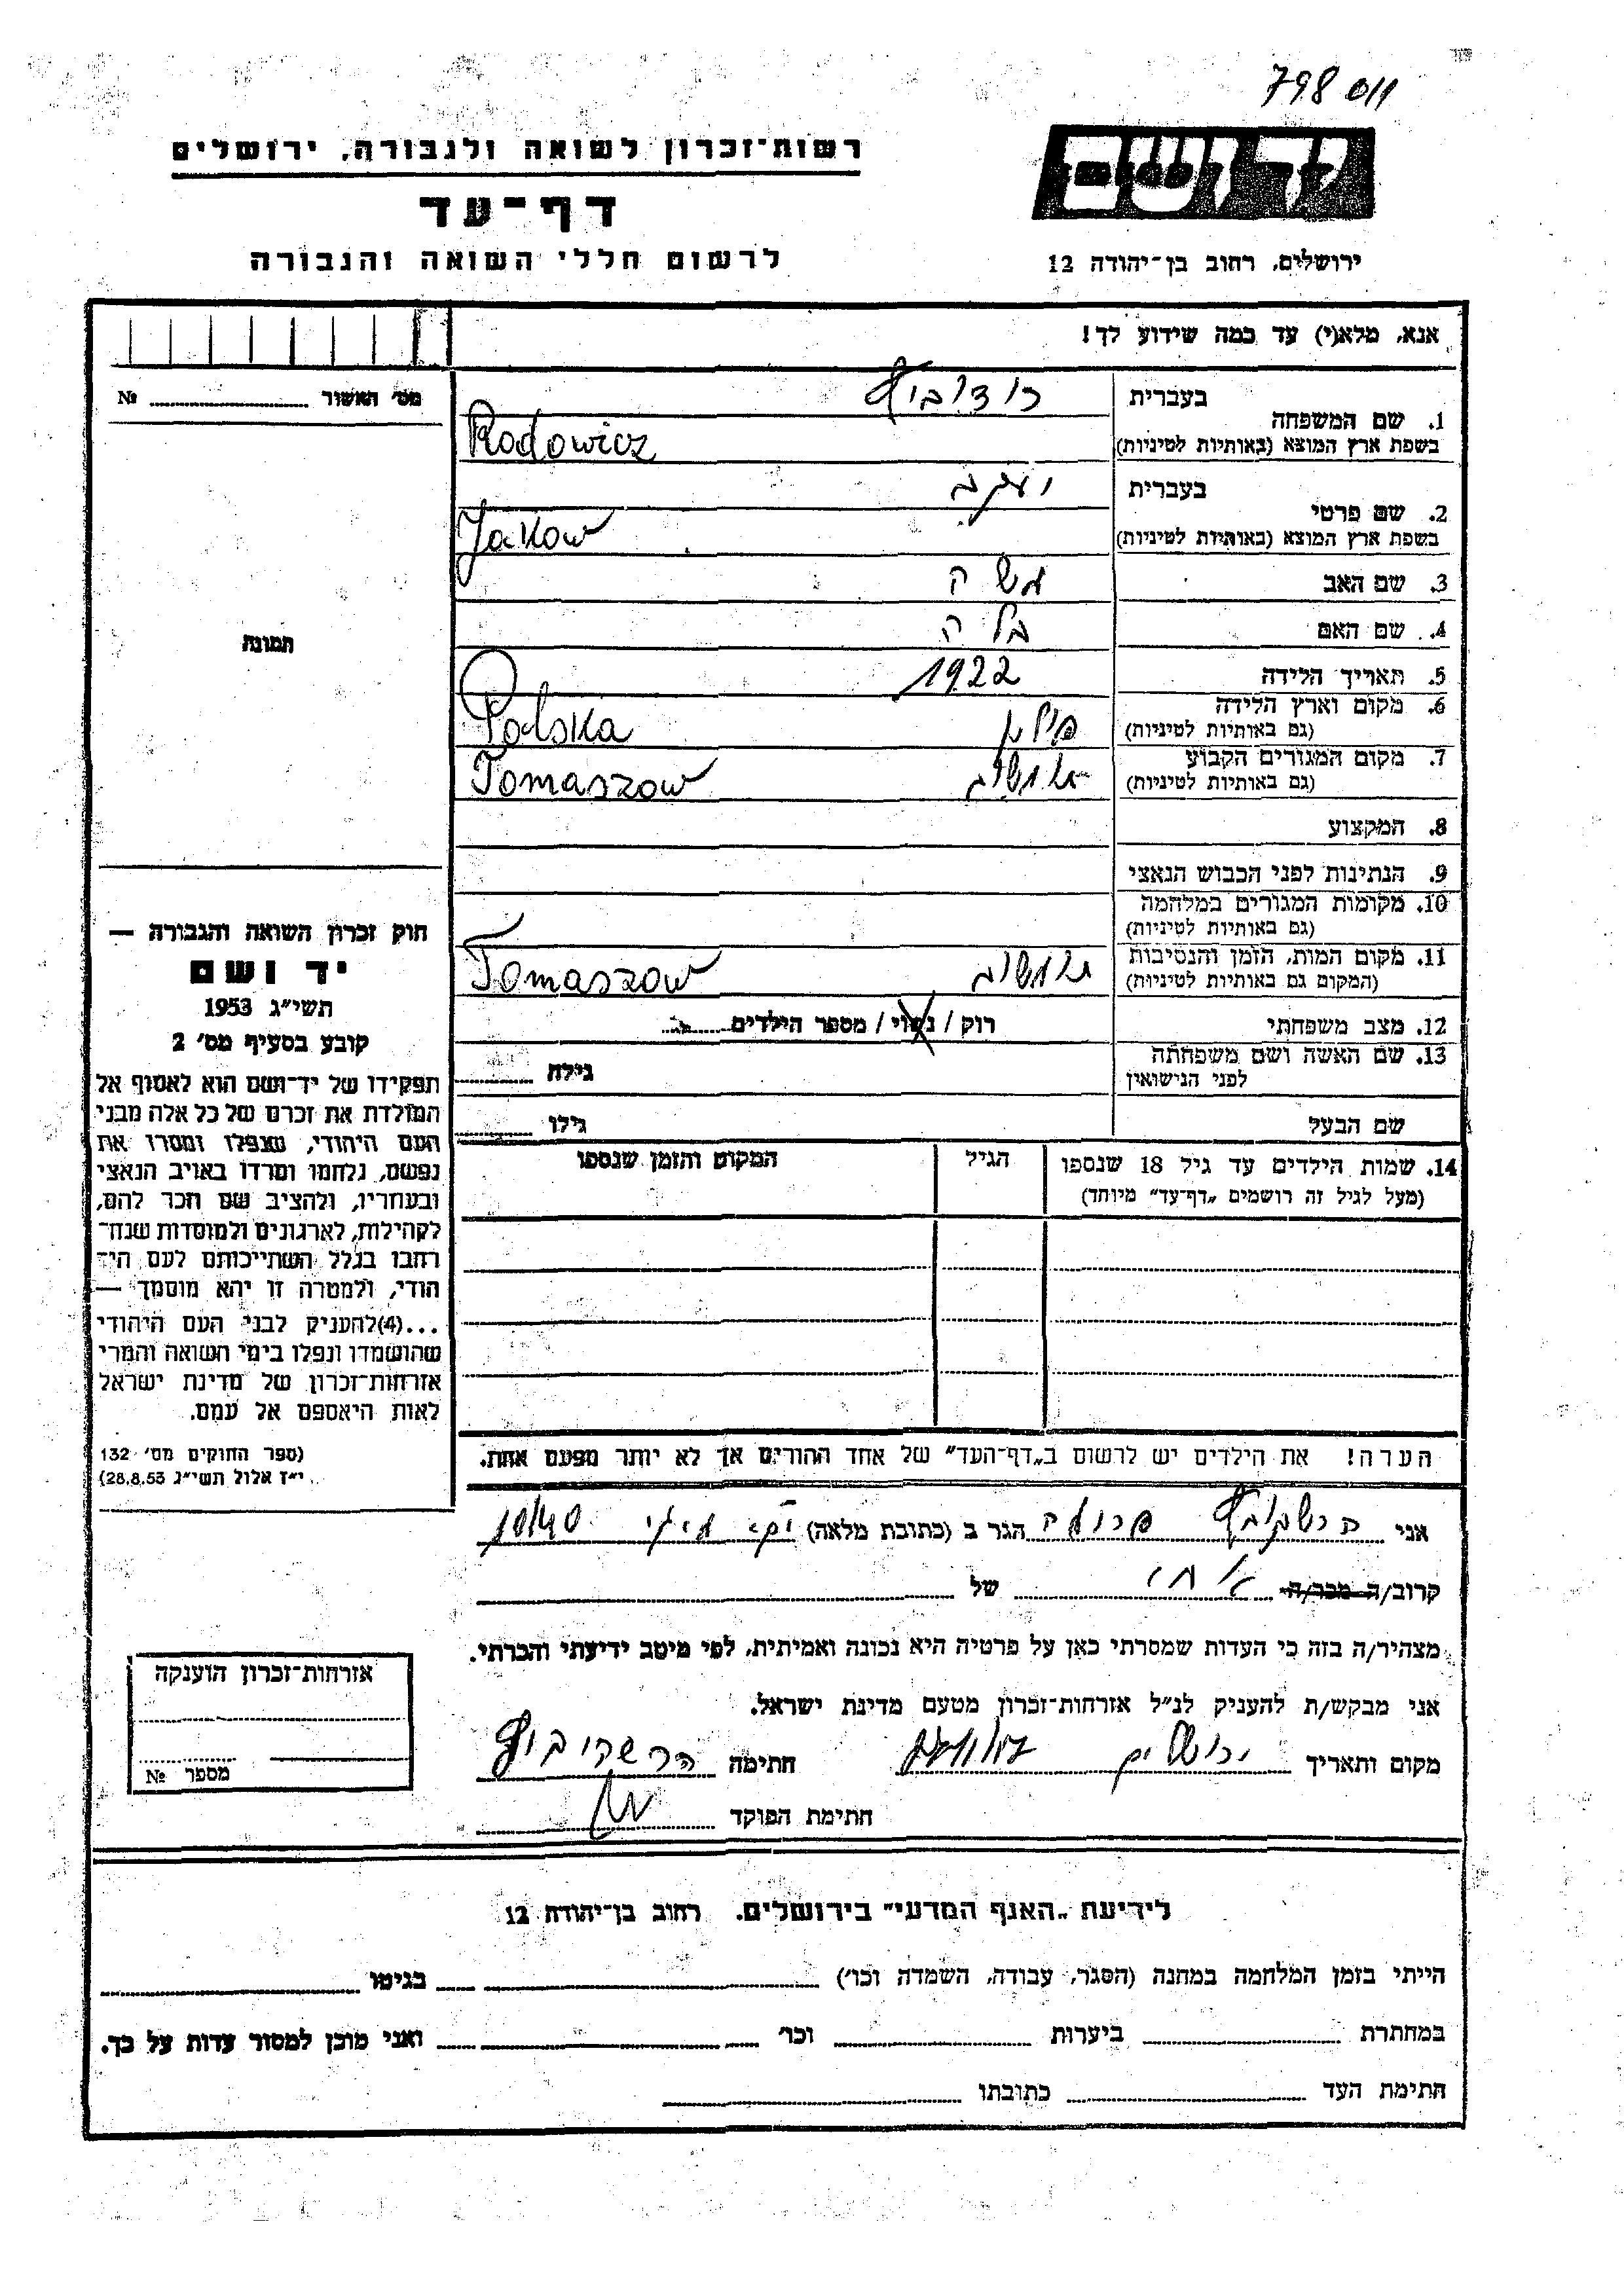 798 011
רשות-זכרון לשואה ולגבורה, ירושלים
יד ושם
דף-עד
לרשום חללי השואה והגבורה
ירושלים, רחוב בן-יהודה 12
אנא, מלא(י) עד כמה שידוע לך!
מס' האשור № 
1. שם המשפחה בעברית רודוביץ
בשפת ארץ המוצא (באותיות לטיניות) Rodowicz
2. שם פרטי בעברית יעקב
בשפת ארץ המוצא (באותיות לטיניות) Jakow
3. שם האב משה
4. שם האם בלה
5. תאריך הלידה 1922
6. מקום וארץ הלידה פולין Polska
(גם באותיות לטיניות)
7. מקום המגורים הקבוע טומשוב Tomaszow
(גם באותיות לטיניות)
8. המקצוע
9. הנתינות לפני הכבוש הנאצי
10. מקומות המגורים במלחמה
(גם באותיות לטיניות)
11. מקום המות, הזמן והנסיבות טומשוב Tomaszow
(המקום גם באותיות לטיניות)
12. מצב משפחתי רוק / נשוי / מספר הילדים
13. שם האשה ושם משפחתה גילה
לפני הנישואין
שם הבעל גילו
14. שמות הילדים עד גיל 18 שנספו הגיל המקום והזמן שנספו
(מעל לגיל זה רושמים „דף-עד” מיוחד)
הערה! את הילדים יש לרשום ב„דף-העד” של אחד ההורים אך לא יותר מפעם אחת.
תמונה
חוק זכרון השואה והגבורה —
יד ושם
תשי"ג 1953
קובע בסעיף מס' 2
תפקידו של יד-ושם הוא לאסוף אל
המולדת את זכרם של כל אלה מבני
העם היהודי, שנפלו ומסרו את
נפשם, נלחמו ומרדו באויב הנאצי
ובעוזריו, ולהציב שם וזכר להם,
לקהילות, לארגונים ולמוסדות שנח-
רבו בגלל השתייכותם לעם הי-
הודי, ולמטרה זו יהא מוסמך —
...(4)להעניק לבני העם היהודי
שהושמדו ונפלו בימי השואה והמרי
אזרחות-זכרון של מדינת ישראל
לאות היאספם אל עמם.
(ספר החוקים מס' 132
י"ז אלול תשי"ג 28.8.53)
אני הרשקוביץ פרומה הגר ב (כתובת מלאה)
קרוב/ה מכר/ה אחי של
מצהיר/ה בזה כי העדות שמסרתי כאן על פרטיה היא נכונה ואמיתית, לפי מיטב ידיעתי והכרתי.
אני מבקש/ת להעניק לנ"ל אזרחות-זכרון מטעם מדינת ישראל.
מקום ותאריך ירושלים חתימה הרשקוביץ
חתימת הפוקד
אזרחות-זכרון הוענקה
מספר №
לידיעת „האגף המדעי” בירושלים, רחוב בן-יהודה 12
הייתי בזמן המלחמה במחנה (הסגר, עבודה, השמדה וכו') בגיטו
במחתרת ביערות וכו' ואני מוכן למסור עדות על כך.
חתימת העד כתובתו